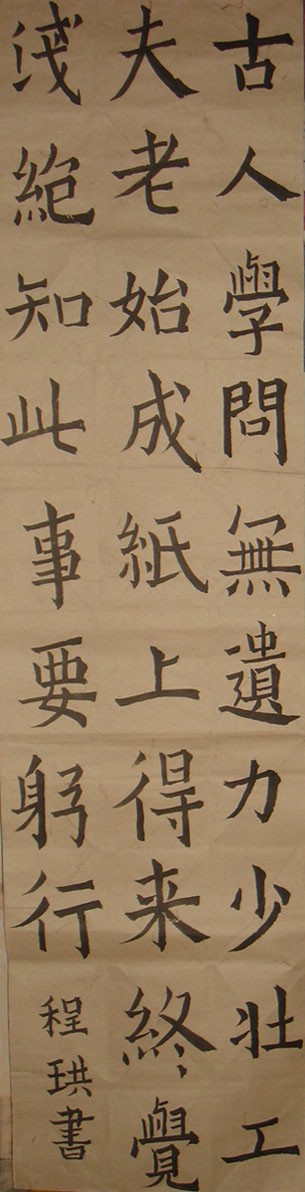 古人學問無遺力少壯工
夫老始成紙上得来終覺
浅絕知此事要躬行
程珙書